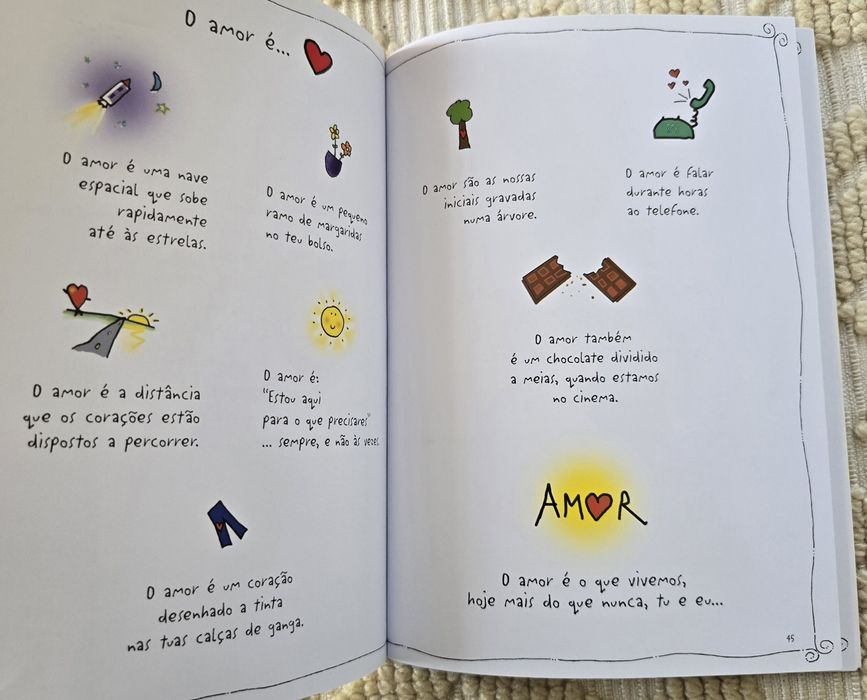 O amor é...
O amor é uma nave
espacial que sobe
rapidamente
até às estrelas.
O amor é um pequeno
ramo de margaridas
no teu bolso.
O amor é a distância
que os corações estão
dispostos a percorrer.
O amor é:
"Estou aqui
para o que precisares"
... sempre, e não às vezes.
O amor é um coração
desenhado a tinta
nas tuas calças de ganga.
O amor são as nossas
iniciais gravadas
numa árvore.
O amor é falar
durante horas
ao telefone.
O amor também
é um chocolate dividido
a meias, quando estamos
no cinema.
AMOR
O amor é o que vivemos,
hoje mais do que nunca, tu e eu...
45